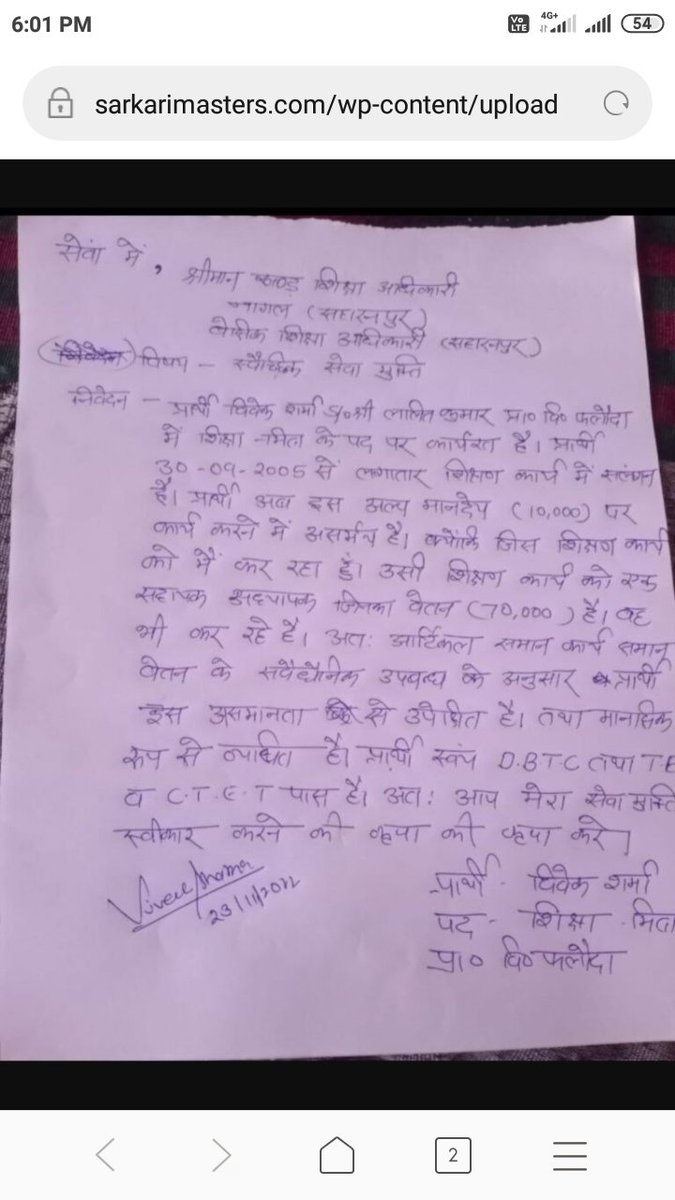 6:01 PM
Vo LTE 4G+ 54
sarkarimasters.com/wp-content/upload
सेवां में,
श्रीमान खण्ड शिक्षा अधिकारी
नागल (सहारनपुर)
बेसिक शिक्षा अधिकारी (सहारनपुर)
विषय - स्वैच्छिक सेवा मुक्ति
निवेदन - प्रार्थी विवेक शर्मा पु०श्री ललित कुमार प्रा० वि० फलौदा
में शिक्षा -मित्र के पद पर कार्यरत है। प्रार्थी
30-09-2005 से लगातार शिक्षण कार्य में सलंग्न
है। प्रार्थी अब इस अल्प मानदेय (10,000) पर
कार्य करने में असर्मथ है। क्योंकि जिस शिक्षण कार्य
को मैं कर रहा हूं। उसी शिक्षण कार्य को एक
सहायक अध्यापक जिनका वेतन (70,000) है। वह
भी कर रहे है। अतः आर्टिकल समान कार्य समान
वेतन के सवैंधानिक उपबन्ध के अनुसार प्रार्थी
इस असमानता से उपेक्षित है। तथा मानसिक
रूप से व्यथित है। प्रार्थी स्वंय D.B.T.C तथा T.E
व C.T.E.T पास है। अतः आप मेरा सेवा मुक्ति
स्वीकार करने की कृपा की कृपा करे।
Vivek Sharma
23/11/2022
प्रार्थी - विवेक शर्मा
पद - शिक्षा -मित्र
प्रा० वि० फलौदा
2